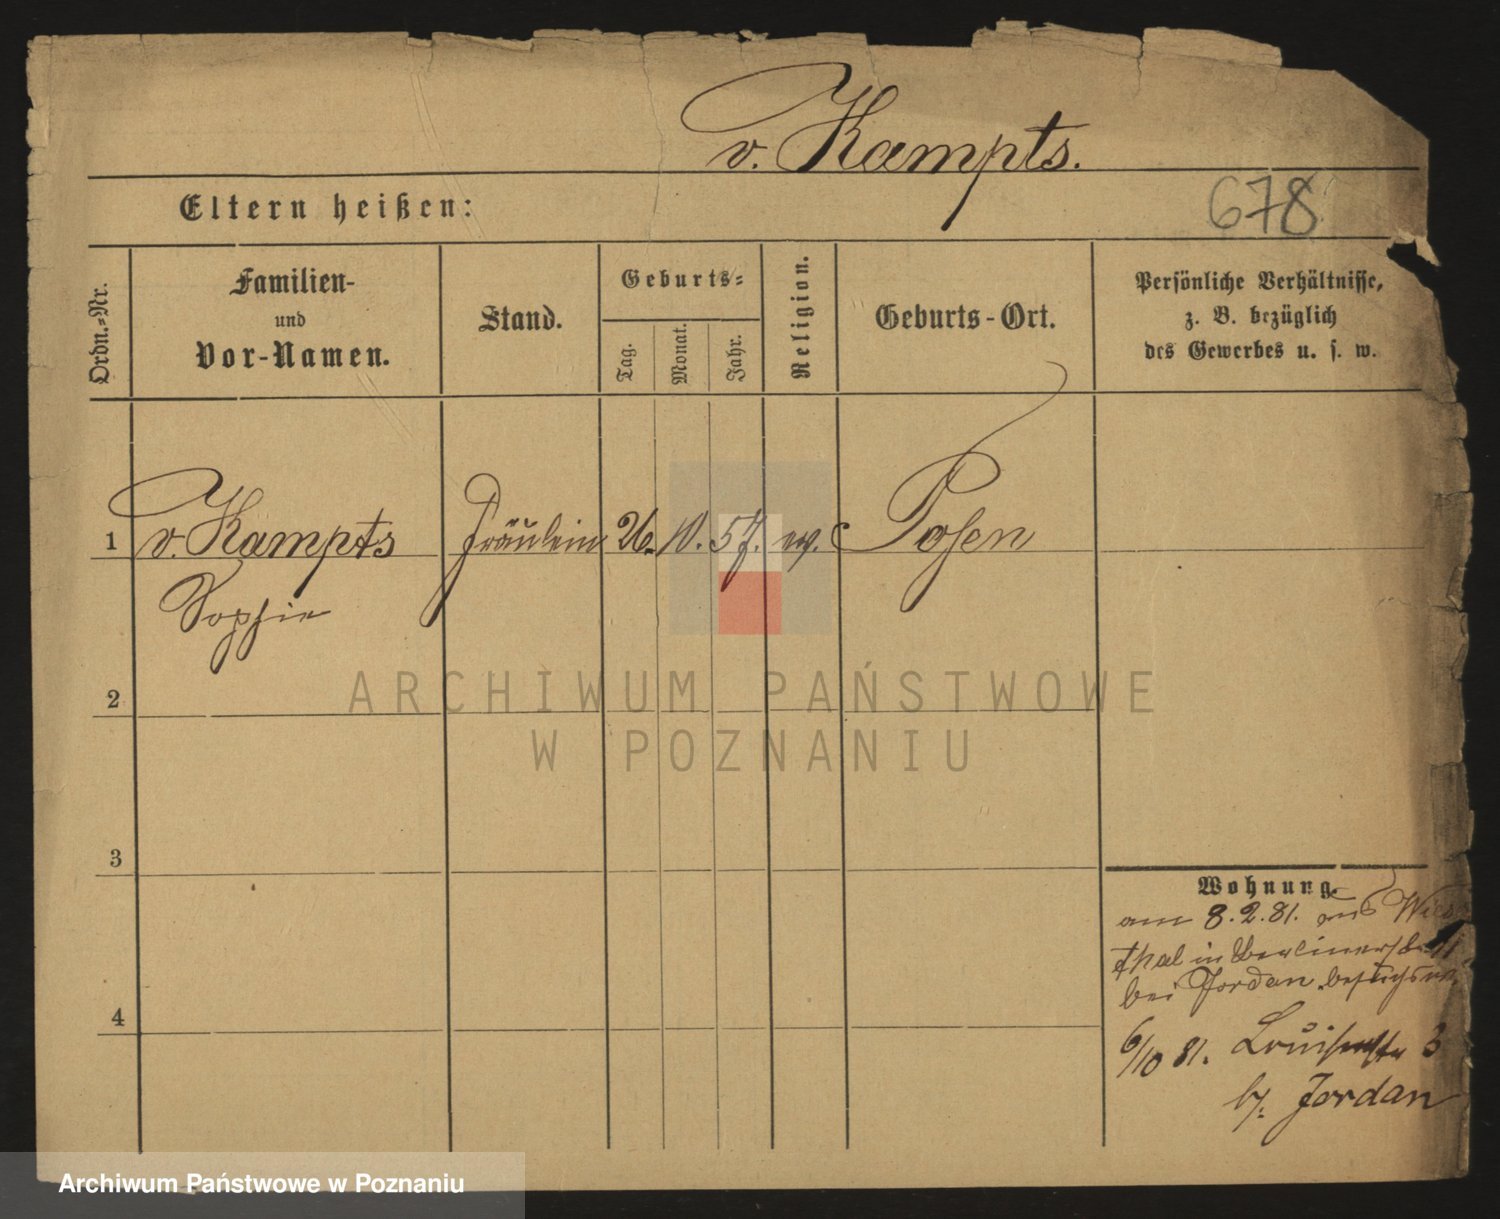 v. Kampts.
Eltern heißen:
678
Ordn.-Nr.
Familien-
und
Vor-Namen.
Stand.
Geburts-
Tag.
Monat.
Jahr.
Religion.
Geburts-Ort.
Persönliche Verhältnisse,
z. B. bezüglich
des Gewerbes u. s. w.
1 v. Kampts Fräulein 26. 10. 57. ev. Posen
Sophie
2
3
4
Wohnung.
am 8.2.81. aus
thal in Berlinerstr
bei Jordan
6/10 81. Louisenstr 3
b/. Jordan
ARCHIWUM PAŃSTWOWE
W POZNANIU
Archiwum Państwowe w Poznaniu